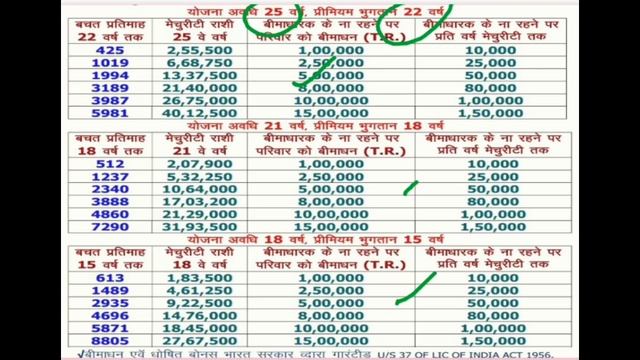 योजना अवधि 25 वर्ष, प्रीमियम भुगतान 22 वर्ष
बचत प्रतिमाह 22 वर्ष तक | मेचुरीटी राशी 25 वे वर्ष | बीमाधारक के ना रहने पर परिवार को बीमाधन (T.R.) | बीमाधारक के ना रहने पर प्रति वर्ष मेचुरीटी तक
425 2,55,500 1,00,000 10,000
1019 6,68,750 2,50,000 25,000
1994 13,37,500 5,00,000 50,000
3189 21,40,000 8,00,000 80,000
3987 26,75,000 10,00,000 1,00,000
5981 40,12,500 15,00,000 1,50,000
योजना अवधि 21 वर्ष, प्रीमियम भुगतान 18 वर्ष
बचत प्रतिमाह 18 वर्ष तक | मेचुरीटी राशी 21 वे वर्ष | बीमाधारक के ना रहने पर परिवार को बीमाधन (T.R.) | बीमाधारक के ना रहने पर प्रति वर्ष मेचुरीटी तक
512 2,07,900 1,00,000 10,000
1237 5,32,250 2,50,000 25,000
2340 10,64,000 5,00,000 50,000
3888 17,03,200 8,00,000 80,000
4860 21,29,000 10,00,000 1,00,000
7290 31,93,500 15,00,000 1,50,000
योजना अवधि 18 वर्ष, प्रीमियम भुगतान 15 वर्ष
बचत प्रतिमाह 15 वर्ष तक | मेचुरीटी राशी 18 वे वर्ष | बीमाधारक के ना रहने पर परिवार को बीमाधन (T.R.) | बीमाधारक के ना रहने पर प्रति वर्ष मेचुरीटी तक
613 1,83,500 1,00,000 10,000
1489 4,61,250 2,50,000 25,000
2935 9,22,500 5,00,000 50,000
4696 14,76,000 8,00,000 80,000
5871 18,45,000 10,00,000 1,00,000
8805 27,67,500 15,00,000 1,50,000
√बीमाधन एवॅं धोषित बोनस भारत सरकार व्दारा गारंटीड U/S 37 OF LIC OF INDIA ACT 1956.